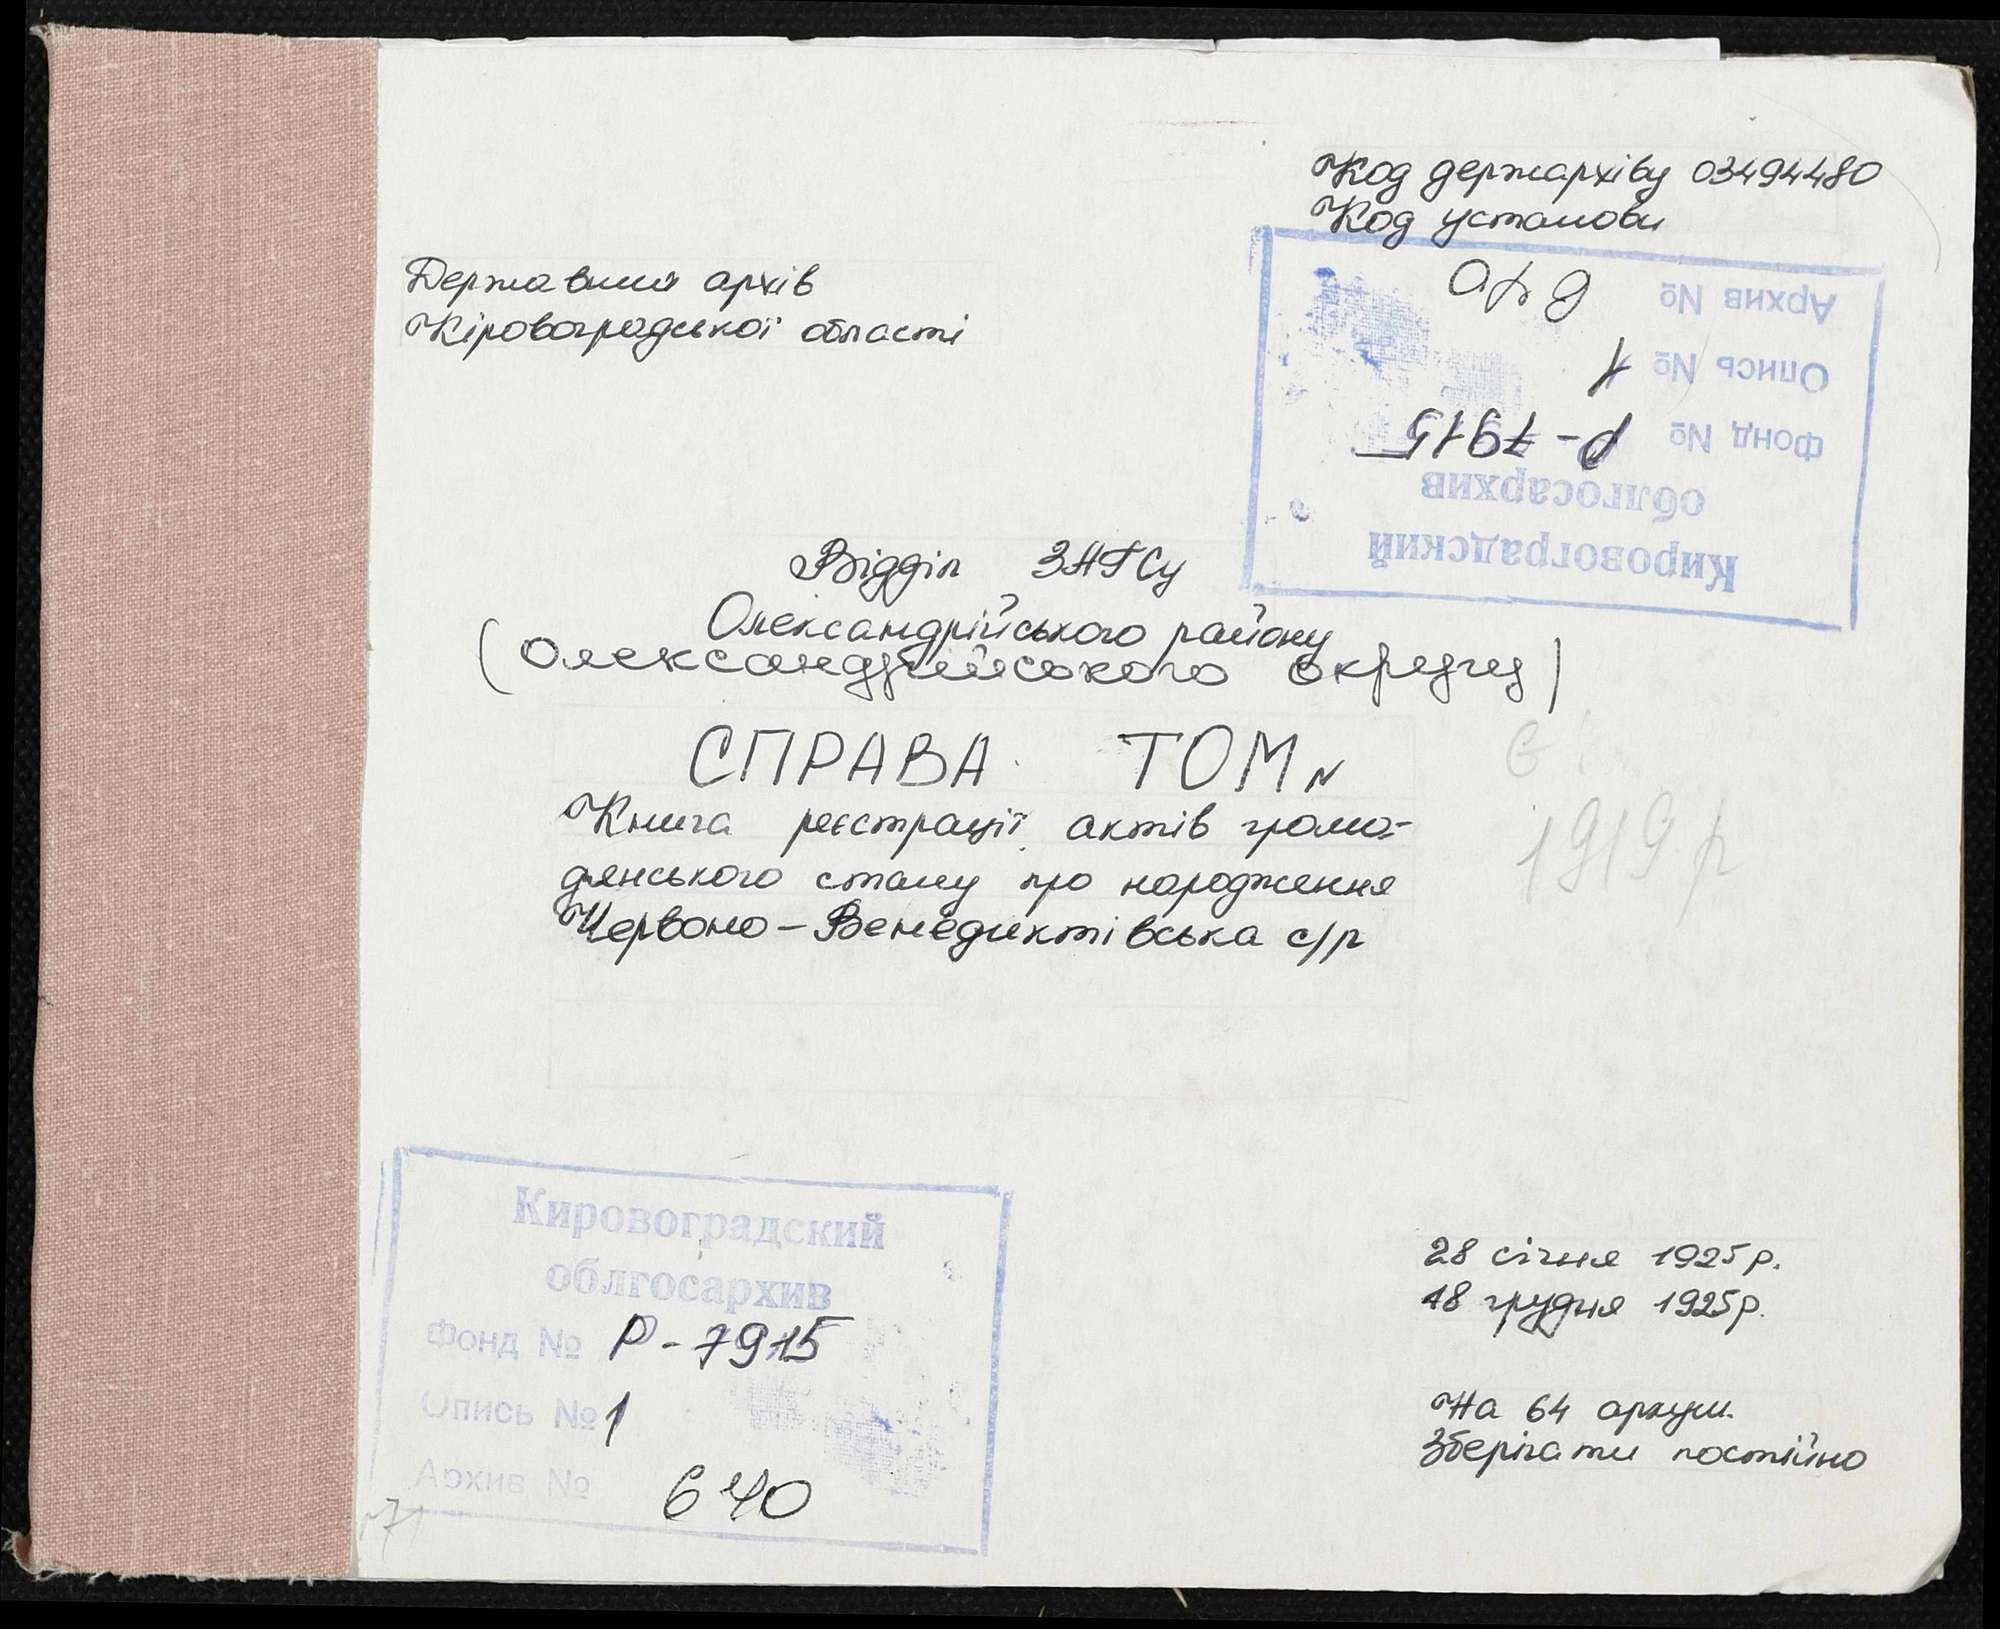 Код держархіву 03494480
Код установи
Державний архів
Кіровоградської області
Кировоградский
облгосархив
Фонд № Р-7915
Опись № 1
Архив № 640
Відділ ЗАГСу
Олександрійського району
(Олександрійського округу)
СПРАВА ТОМ N
Книга реєстрації актів грома-
дянського стану про народження
Червоно-Венедиктівська с/р
1919 р
28 січня 1925р.
18 грудня 1925р.
На 64 аркуш.
Зберігати постійно
Кировоградский
облгосархив
Фонд № Р-7915
Опись № 1
Архив № 640